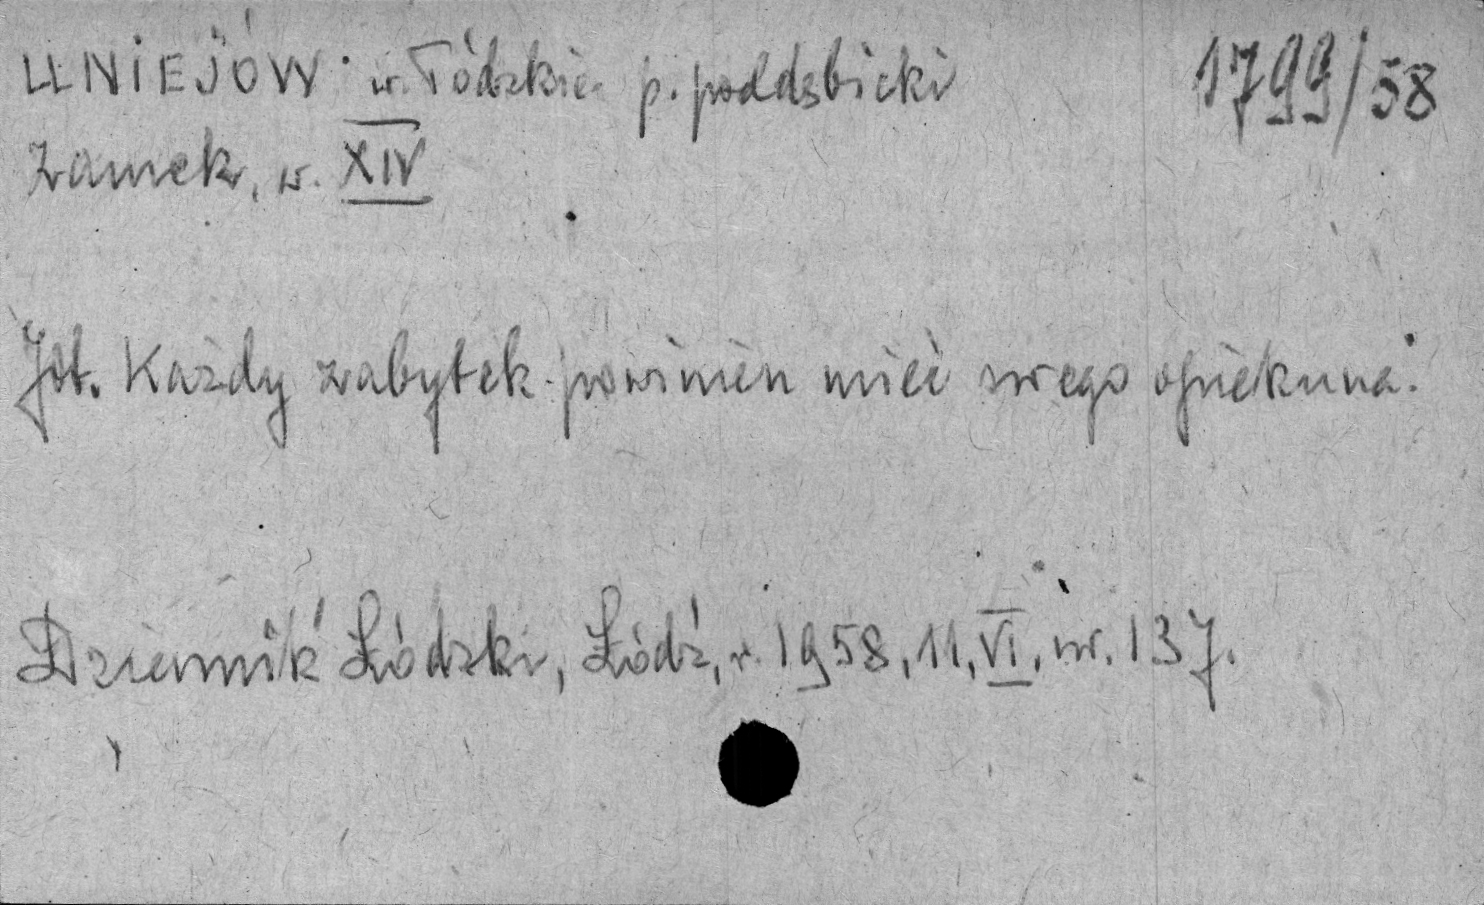 UNIEJÓW w. Łódzkie p. poddębicki 1799/58
Zamek, w. XIV
Jot. Każdy zabytek powinien mieć swego opiekuna.
Dziennik Łódzki, Łódź, r. 1958, 11, VI, nr. 137.